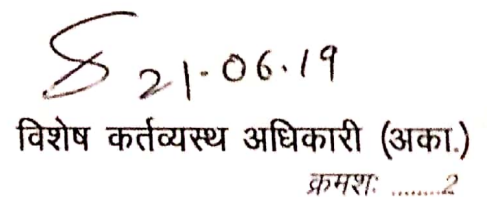 21.06.19
विशेष कर्तव्यस्थ अधिकारी (अका.)
क्रमशः ........2